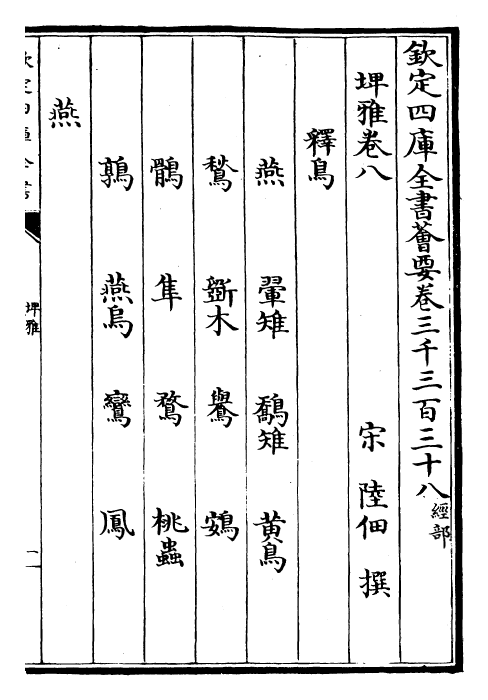 欽定四庫全書薈要卷三千三百三十八 經部
埤雅卷八 宋 陸佃 撰
釋鳥
燕 翬雉 鷸雉 黄鳥
鶖 斵木 鷽 鴳
鶻 隼 鶩 桃蟲
鶉 燕烏 鸞 鳳
燕
欽定四庫全書
埤雅
一